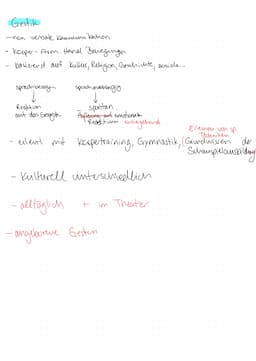 Gestik
- non verbale Kommunikation
- Körper- Arm Hand Bewegungen
- basierend auf Kultur, Religion, Geschichte, soziale...
sprachbezogen sprachunabhängig
Reaktion spontan
auf das Gesagte
Reaktion
- erlernt mit Körpertraining, Gymnastik, (Grundwissen der Schauspielausbildung)
Erlernen von sp. Techniken
- kulturell unterschiedlich
- alltäglich + im Theater
- angeborene Gesten